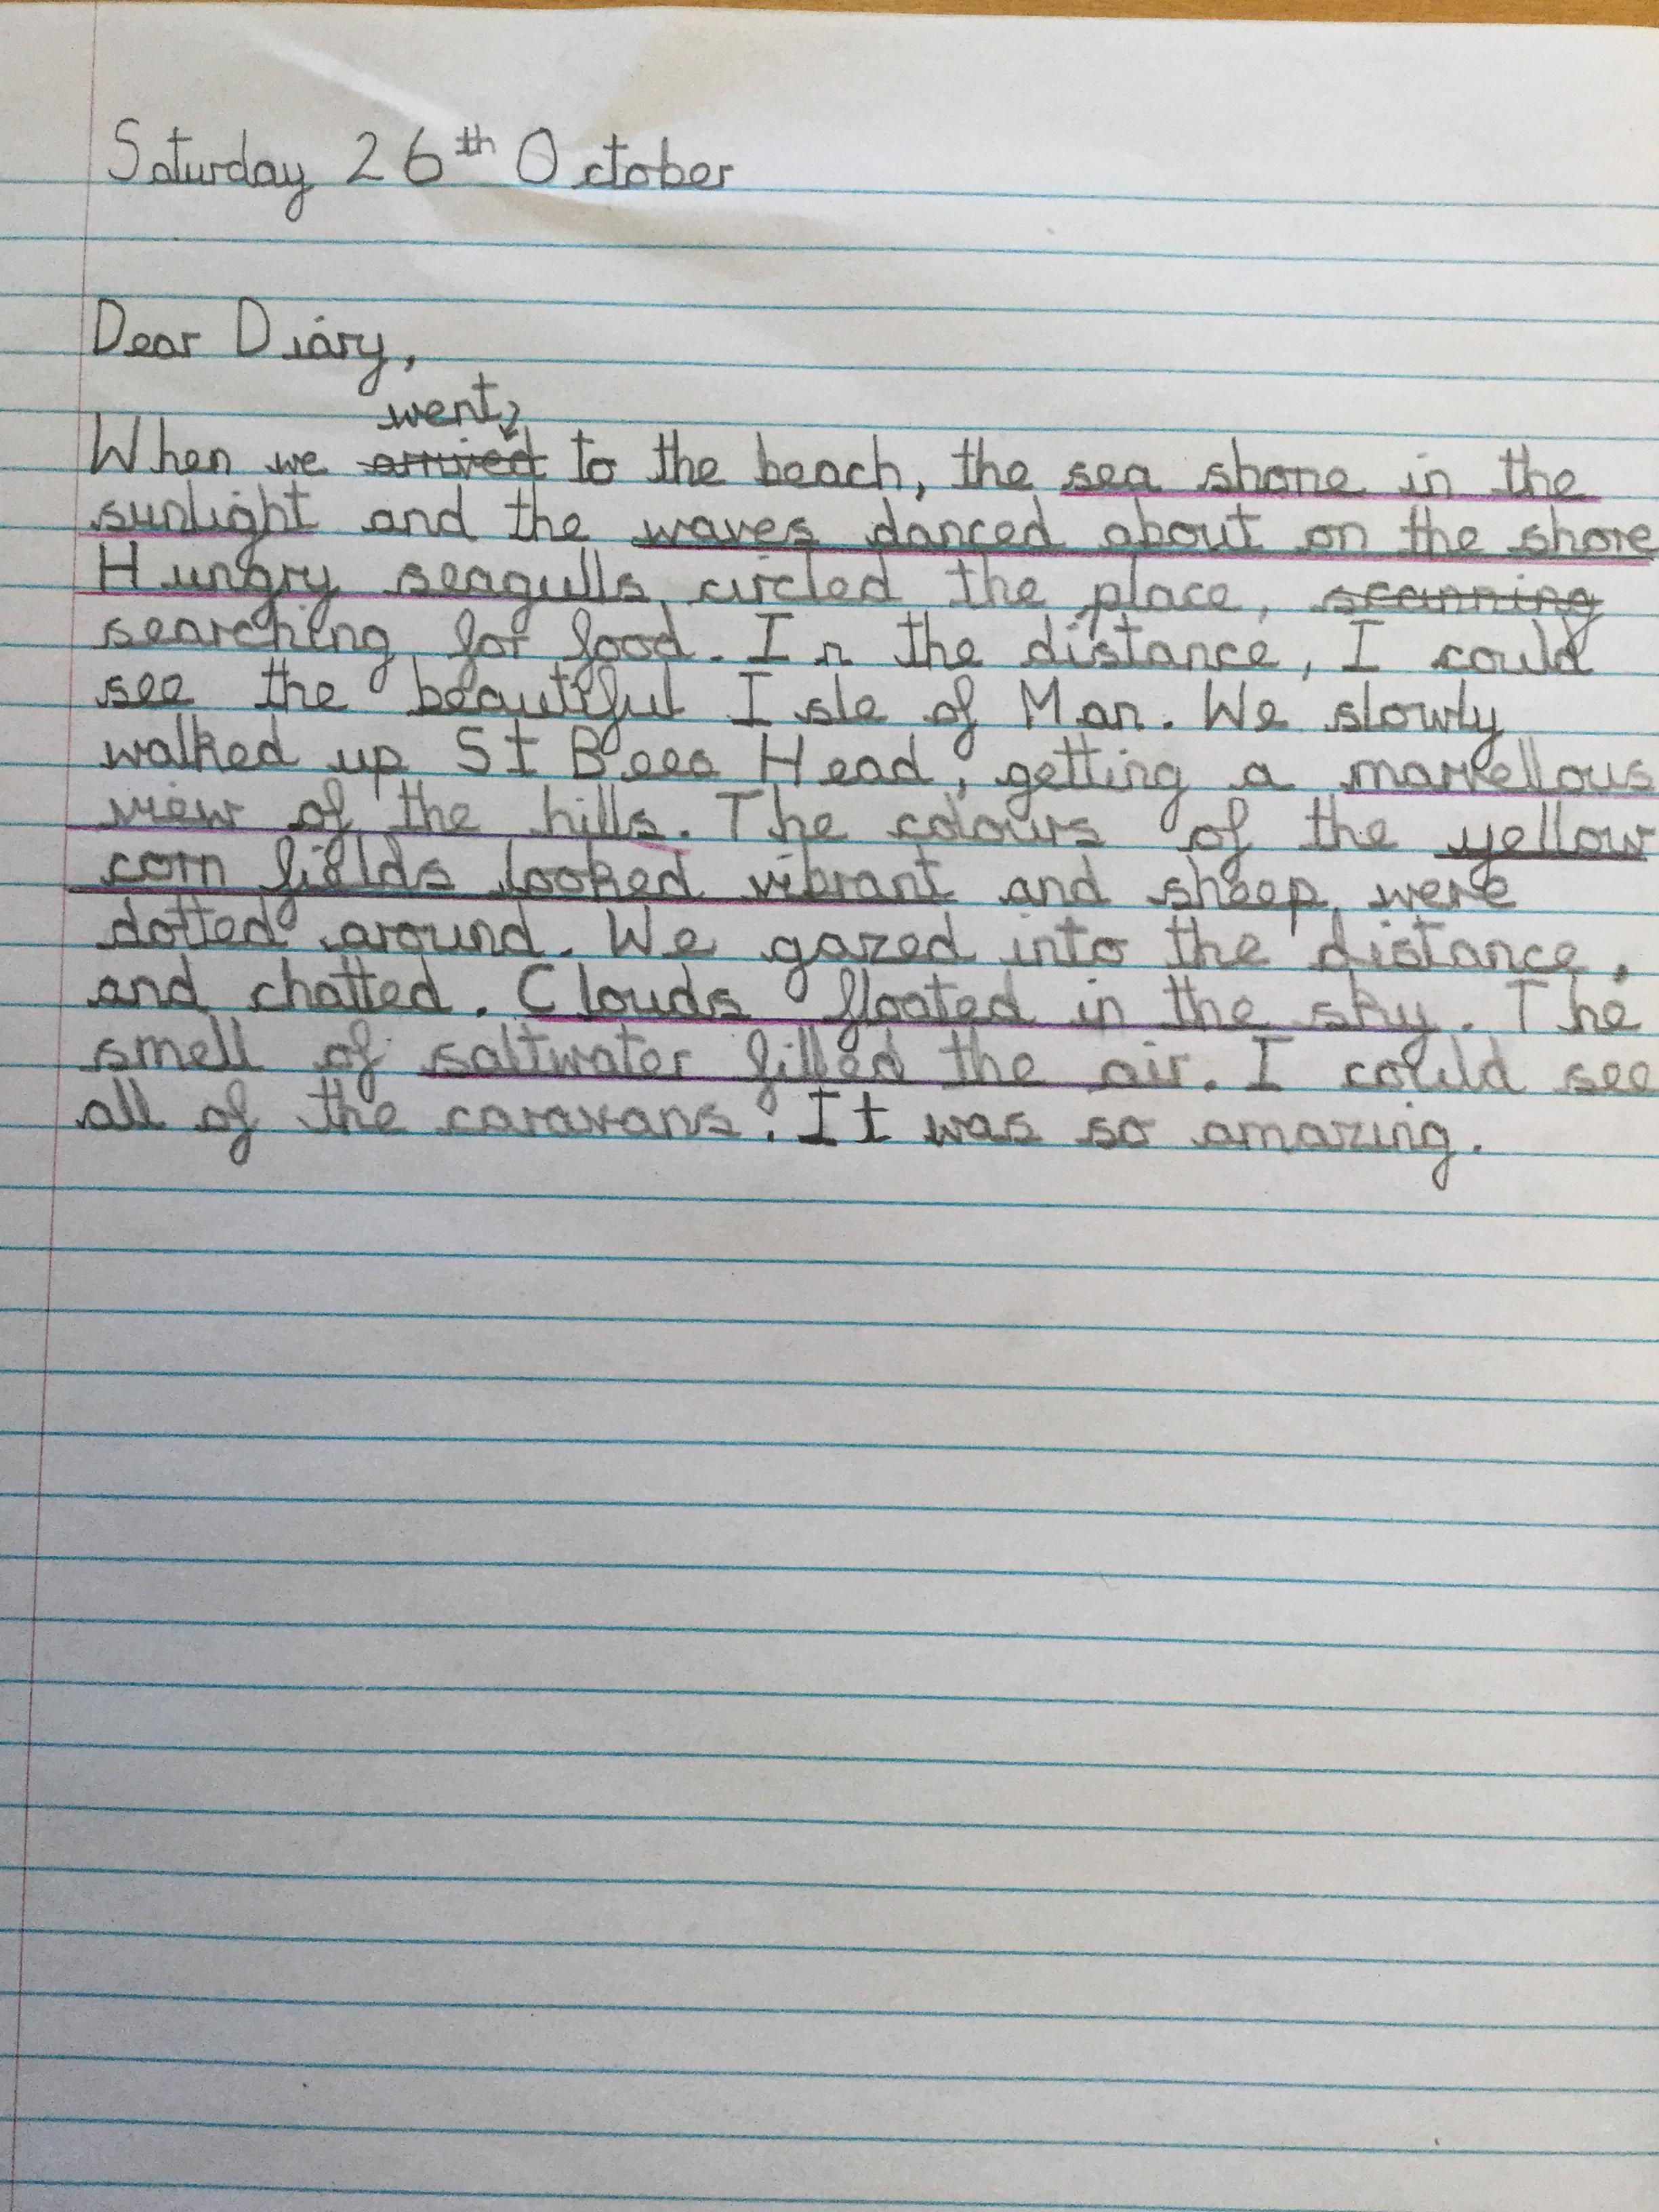 Saturday 26th October
Dear Diary,
went
When we arrived to the beach, the sea shone in the
sunlight and the waves danced about on the shore
Hungry seagulls circled the place, scanning
searching for food. In the distance, I could
see the beautiful Isle of Man. We slowly
walked up St Bees Head, getting a marvellous
view of the hills. The colours of the yellow
corn fields looked vibrant and sheep were
dotted around. We gazed into the distance,
and chatted. Clouds floated in the sky. The
smell of saltwater filled the air. I could see
all of the caravans. It was so amazing.